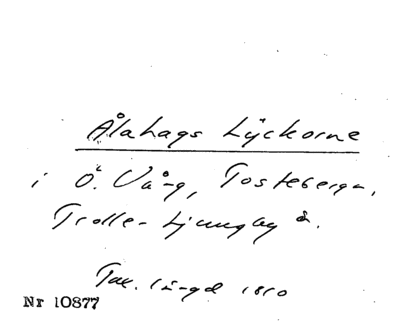 Ålahags Lyckorne
i Ö. Vång, Tosteberga,
Trolle-Ljungby s.
Tax. längd 1810
Nr 10877